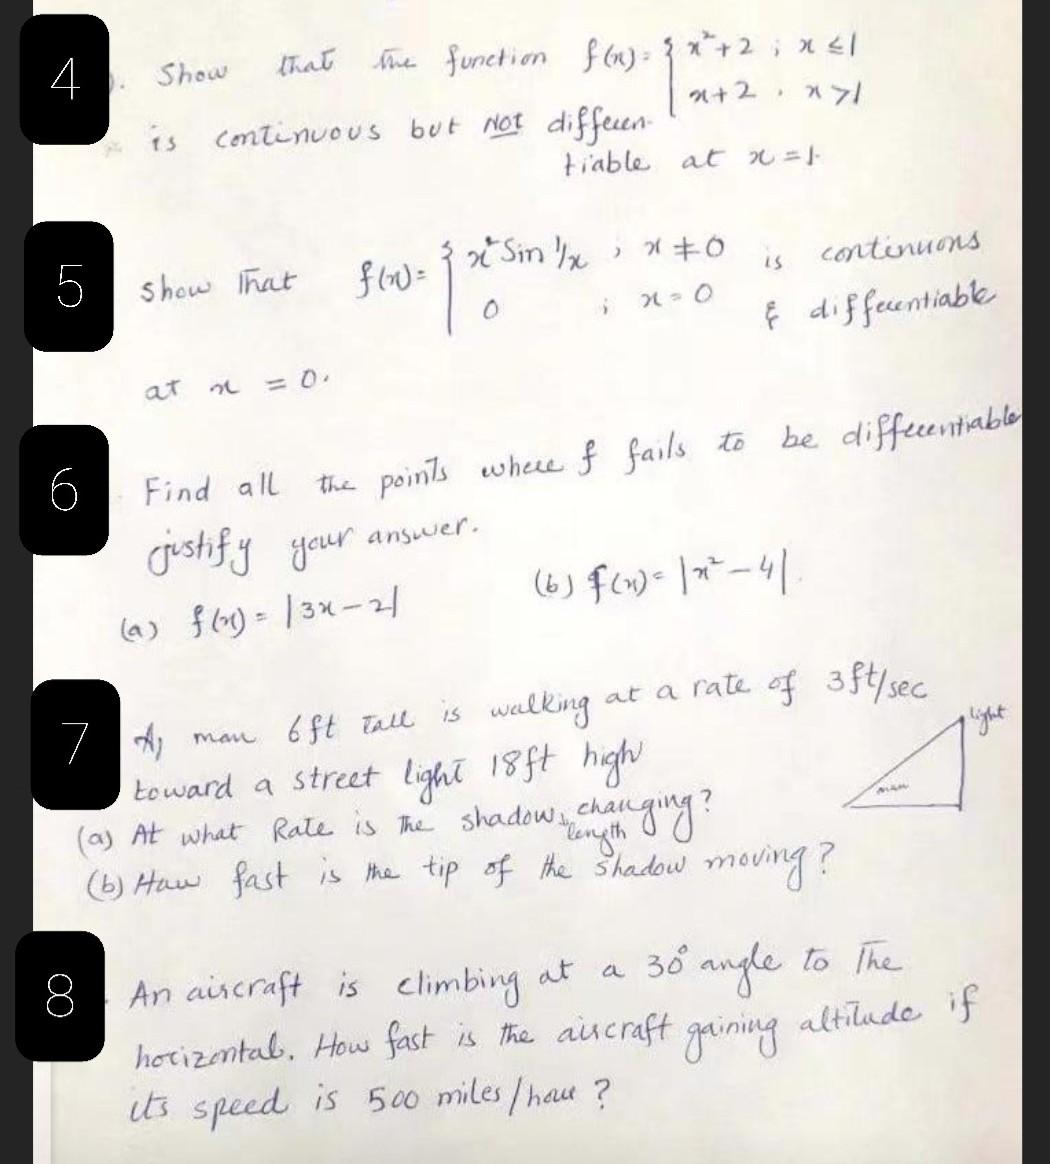 4 . Show that the function f(x) = { x²+2 ; x ≤ 1
x+2 . x > 1
is continuous but NOT differen-
tiable at x = 1.
5 Show that f(x) = { x² Sin 1/x ; x ≠ 0 is continuous
0 ; x = 0 & differentiable
at x = 0.
6 Find all the points where f fails to be differentiable
justify your answer.
(a) f(x) = |3x-2| (b) f(x) = |x²-4|.
7 A man 6ft tall is walking at a rate of 3ft/sec
light
toward a street light 18ft high
man
(a) At what Rate is the shadows length changing?
(b) How fast is the tip of the shadow moving?
8 . An aircraft is climbing at a 30° angle to The
horizontal. How fast is the aircraft gaining altitude if
its speed is 500 miles/hour?